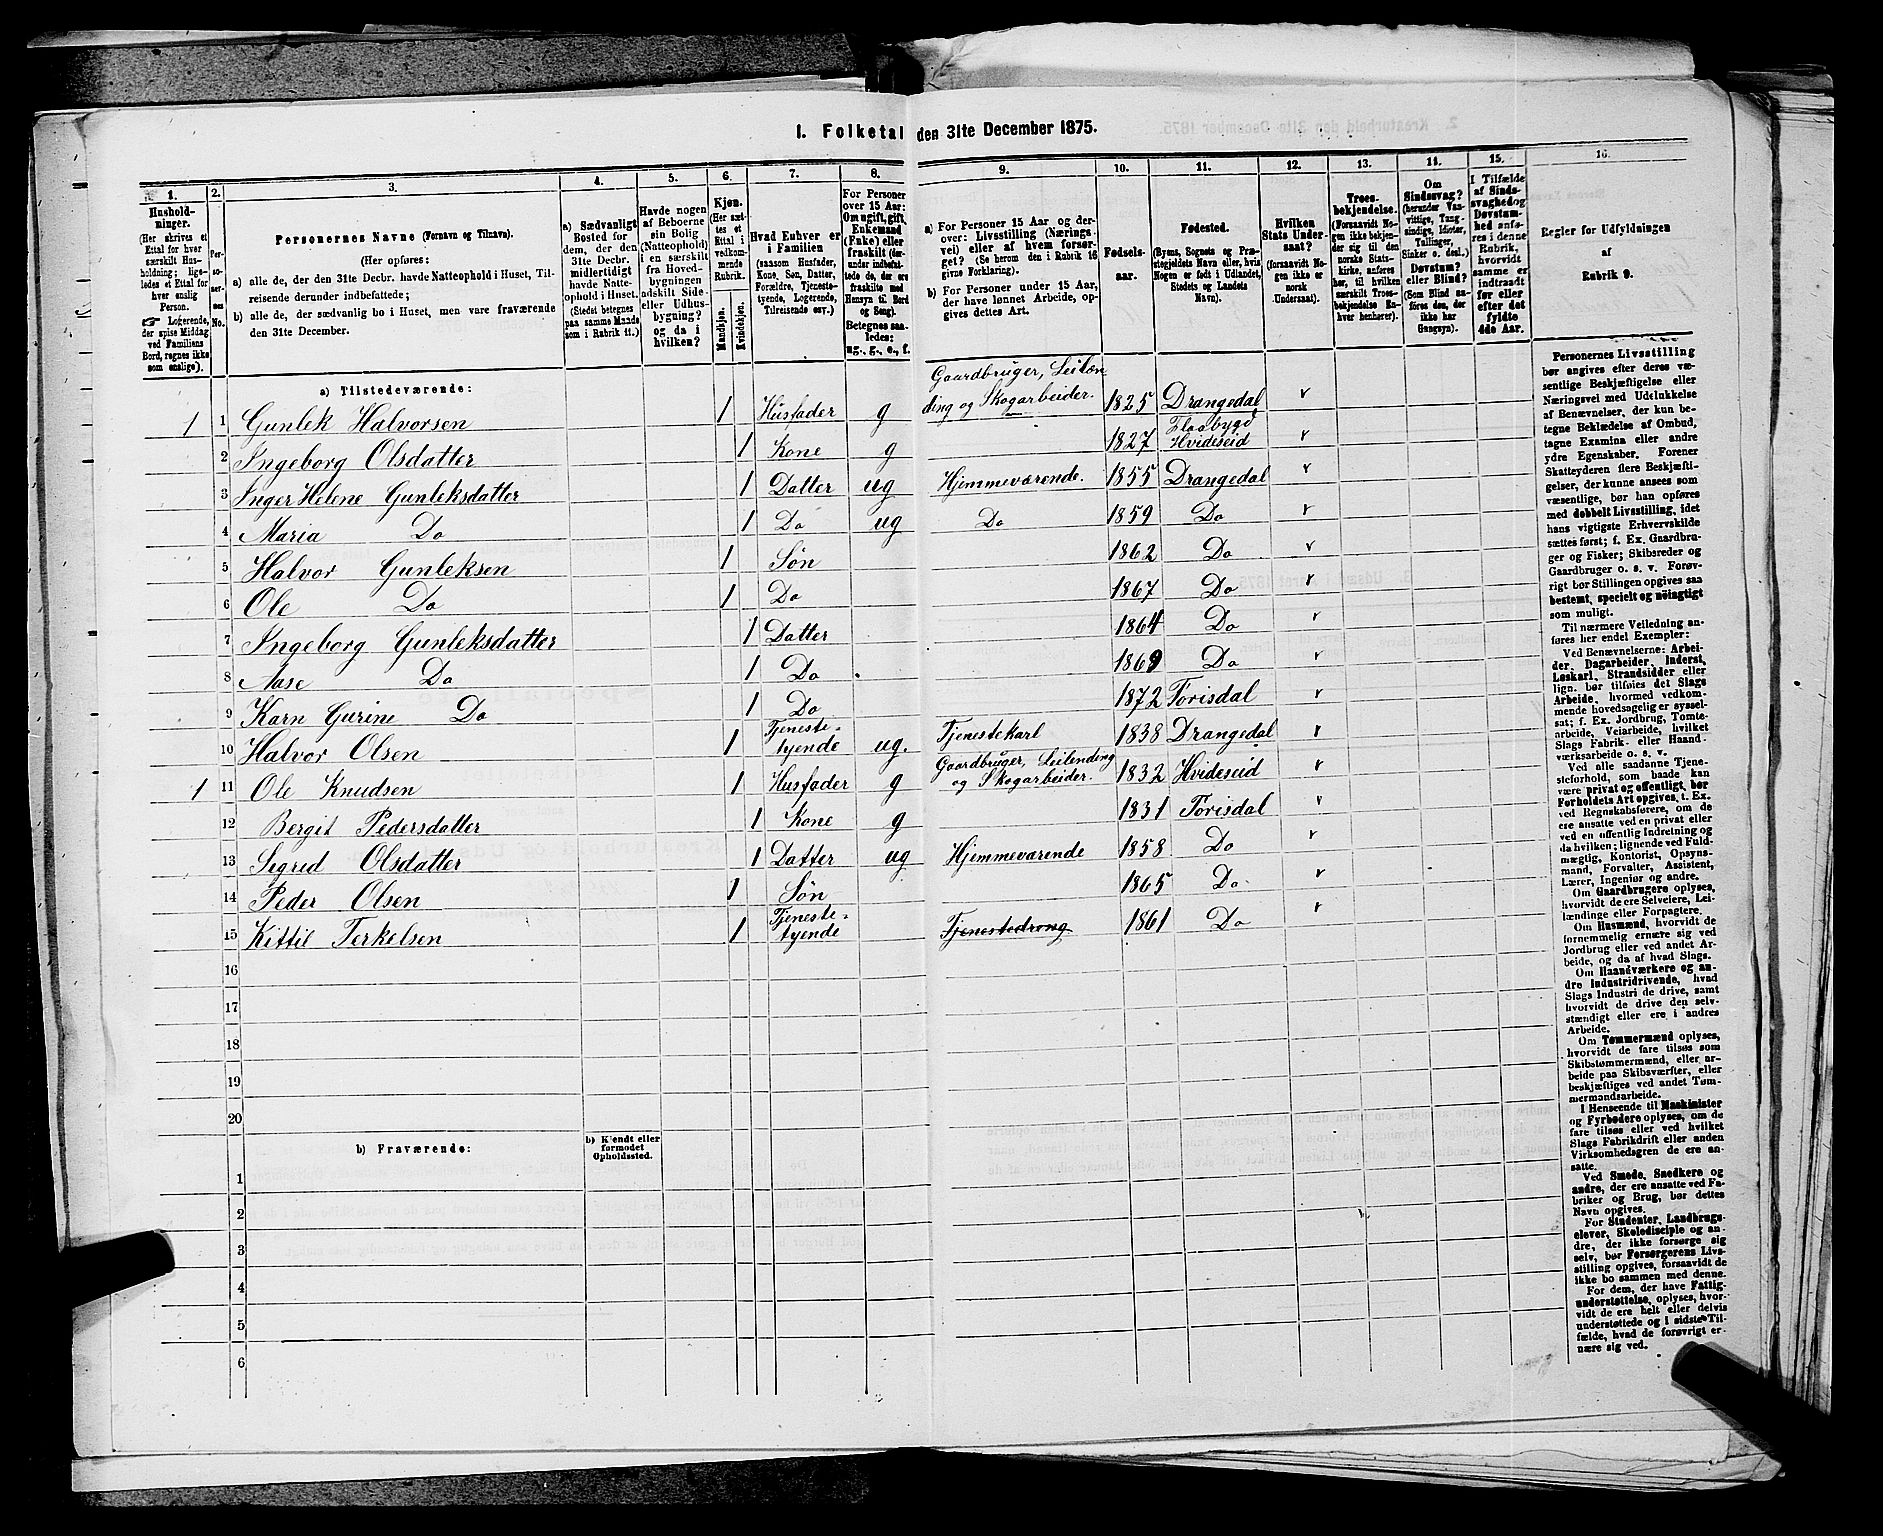 1. Folketal den 31te December 1875.
1.
Hushold-
ninger.
(Her skrives et
Ettal for hver
særskilt Hus-
holdning; lige-
ledes et Ettal for
hver enslig
Person.
☞ Logerende,
der spise Middag
ved Familiens
Bord, regnes ikke
som enslige).
2.
Per-
soner-
nes
No.
3.
Personernes Navne (Fornavn og Tilnavn).
(Her opføres:
a) alle de, der den 31te Decbr. havde Natteophold i Huset, Til-
reisende derunder indbefattede;
b) alle de, der sædvanlig bo i Huset, men vare fraværende
den 31te December.
4.
a) Sædvanligt
Bosted for
dem, der den
31te Decbr.
midlertidigt
havde Natte-
ophold i Huset.
(Stedet betegnes
paa samme Maade
som i Rubrik 11.)
5.
Havde nogen
af Beboerne
sin Bolig
(Natteophold)
i en særskilt
fra Hoved-
bygningen
adskilt Side-
eller Udhus-
bygning?
og da i
hvilken?
6.
Kjøn.
(Her sæt-
tes et
Ettal i
vedkom-
mende
Rubrik.
Mandkjøn.
Kvindekjøn.
7.
Hvad Enhver er
i Familien
(saasom Husfader,
Kone, Søn, Datter,
Forældre, Tjeneste-
tyende, Logerende,
Tilreisende osv.)
8.
For Personer
over 15 Aar:
Om ugift, gift,
Enkemand
(Enke) eller
fraskilt (der-
under indbefat-
tede de, der ere
fraskilte med
Hensyn til Bord
og Seng).
Betegnes saa-
ledes:
ug., g., e., f.
9.
a) For Personer 15 Aar og der-
over: Livsstilling (Nærings-
vei) eller af hvem forsør-
get? (Se herom den i Rubrik 16
givne Forklaring).
b) For Personer under 15 Aar,
der have lønnet Arbeide, op-
gives dettes Art.
10.
Fødsels-
aar.
11.
Fødested.
(Byens, Sognets og Præ-
stegjeldets Navn eller, hvis
Nogen er født i Udlandet,
Stedets og Landets
Navn).
12.
Hvilken
Stats Under-
saat?
(forsaavidt No-
gen ikke er
norsk
Undersaat).
13.
Troes-
bekjendelse.
(Forsaavidt No-
gen ikke bekjen-
der sig til den
norske Stats-
kirke, anføres
her, til hvilken
særskilt Troes-
bekjendelse En-
hver henhører).
11.
Om
Sindssvag?
(herunder Van-
vittige, Tung-
sindige, Idioter,
Tullinger,
Sinker o. desl.)
Døvstum?
eller Blind?
(Som Blind an-
føres den, der
ikke har
Gangsyn).
15.
I Tilfælde
af Sinds-
svaghed og
Døvstum-
hed anfø-
res i denne
Rubrik,
hvorvidt
samme er
indtraadt
før eller
efter det
fyldte
4de Aar.
16.
Regler for Udfyldningen
af
Rubrik 9.
a) Tilstedeværende:
1 1 Gunlek Halvorsen 1 Husfader g Gaardbruger, Leilæn
ding og Skogarbeider. 1825 Drangedal
2 Ingeborg Olsdatter 1 Kone g 1827 Flaabygd
Hvideseid
3 Inger Helene Gunleksdatter 1 Datter ug Hjemmeværende. 1855 Drangedal
4 Maria Do 1 Do ug Do 1859 Do
5 Halvor Gunleksen 1 Søn 1862 Do
6 Ole Do 1 Do 1867 Do
7 Ingeborg Gunleksdatter 1 Datter 1864 Do
8 Aase Do 1 Do 1869 Do
9 Karn Gurine Do 1 Do 1872 Torisdal
10 Halvor Olsen 1 Tjeneste-
tyende ug. Tjenestekarl 1838 Drangedal
1 11 Ole Knudsen 1 Husfader g Gaardbruger, Leilending
og Skogarbeider. 1832 Hvideseid
12 Bergit Pedersdatter 1 Kone g 1831 Torisdal
13 Sigrid Olsdatter 1 Datter ug Hjemmeværende 1858 Do
14 Peder Olsen 1 Søn 1865 Do
15 Kittil Terkelsen 1 Tjeneste-
tyende Tjenestedreng 1861 Do
16
17
18
19
20
b) Fraværende:
b) Kjendt eller
formodet
Opholdssted.
1
2
3
4
5
6
Personernes Livsstilling
bør angives efter deres væ-
sentlige Beskjæftigelse eller
Næringsvei med Udelukkelse
af Benævnelser, der kun be-
tegne Beklædelse af Ombud,
tagne Examina eller andre
ydre Egenskaber. Forener
Skatteyderen flere Beskjæfti-
gelser, der kunne ansees som
væsentlige, bør han opføres
med dobbelt Livsstilling, idet
hans vigtigste Erhvervskilde
sættes først; f. Ex. Gaardbru-
ger og Fisker; Skibsreder og
Gaardbruger o. s. v. Forøv-
rigt bør Stillingen opgives saa
bestemt, specielt og nöiagtigt
som muligt.
Til nærmere Veiledning an-
føres her endel Exempler:
Ved Benævnelserne: Arbei-
der, Dagarbeider, Inderst,
Løskarl, Strandsidder eller
lign. bør tilføies det Slags
Arbeide, hvormed vedkom-
mende hovedsagelig er syssel-
sat; f. Ex. Jordbrug, Tomte-
arbeide, Veiarbeide, hvilket
Slags Fabrik- eller Haand-
værksarbeide o. s. v.
Ved alle saadanne Tjene-
steforhold, som baade kan
være privat og offentligt, bør
Forholdets Art opgives, t. Ex.
ved Regnskabsførere, om de
ere ansatte ved en privat eller
ved en offentlig Indretning og
da hvilken; lignende ved Fuld-
mægtig, Kontorist, Opsyns-
mand, Forvalter, Assistent,
Lærer, Ingeniør og andre.
Om Gaardbrugere oplyses,
hvorvidt de ere Selveiere, Lei-
lændinge eller Forpagtere.
Om Husmænd, hvorvidt de
fornemmelig ernære sig ved
Jordbrug eller ved andet Ar-
beide, og da af hvad Slags.
Om Haandværkere og an-
dre Industridrivende, hvad
Slags Industri de drive, samt
hvorvidt de drive den selv-
stændigt eller ere i andres
Arbeide.
Om Tømmermænd oplyses,
hvorvidt de fare tilsøs som
Skibstømmermænd, eller ar-
beide paa Skibsværfter, eller
beskjæftiges ved andet Tøm-
mermandsarbeide.
I Henseende til Maskinister
og Fyrbødere oplyses, om de
fare tilsøs eller ved hvilket
Slags Fabrikdrift eller anden
Virksomhedsgren de ere an-
satte.
Ved Smede, Snedkere og
andre, der ere ansatte ved Fa-
briker og Brug, bør dettes
Navn opgives.
For Studenter, Landbrugs-
elever, Skoledisciple og an-
dre, der ikke forsørge sig
selv, bør Forsørgerens Livs-
stilling opgives, forsaavidt de
ikke bo sammen med denne.
For dem, der have Fattig-
understøttelse, oplyses, hvor-
vidt de ere helt eller delvis
understøttede og i sidste Til-
fælde, hvad de forøvrigt er-
nære sig ved.